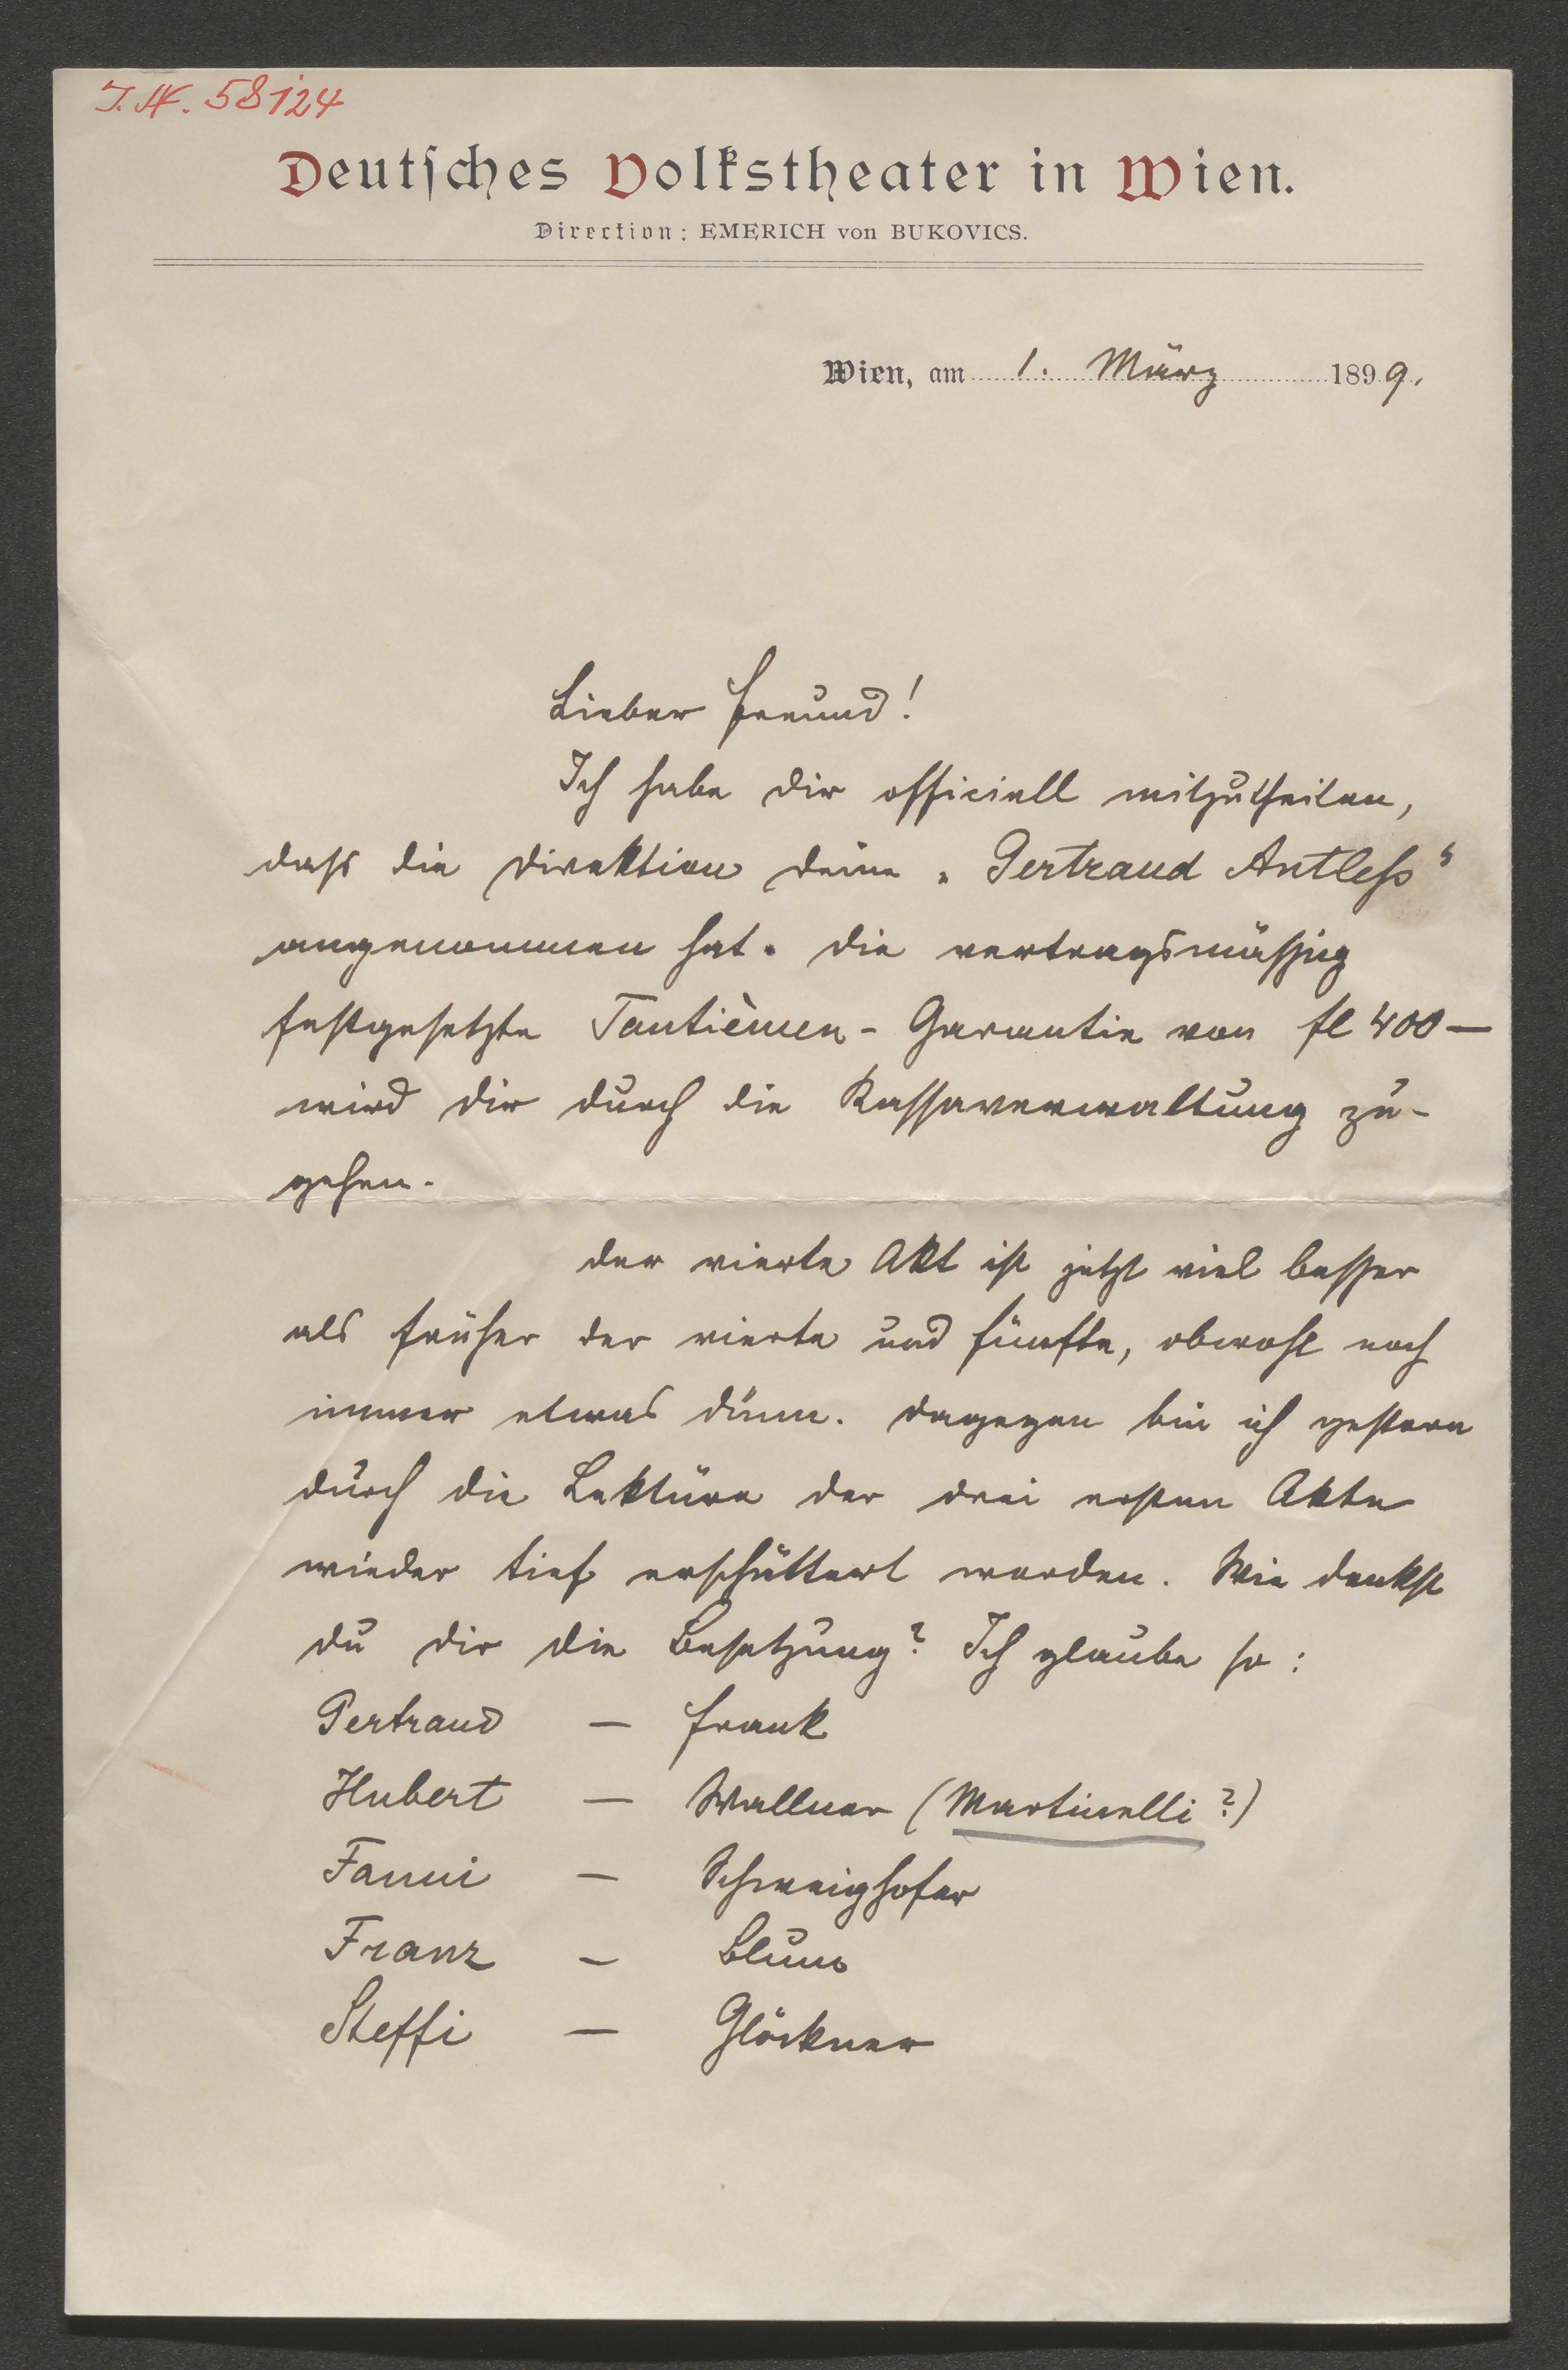 J. N. 58124
Deutsches Volkstheater in Wien.
Direction: EMERICH von BUKOVICS.
Wien, am 1. März 1899.
Lieber Freund!
Ich habe dir officiell mitzutheilen,
dass die Direktion deine „Gertraud Antless“
angenommen hat. Die vertragsmässig
festgesetzte Tantièmen-Garantie von fl 400—
wird dir durch die Kassaverwaltung zu-
gehen.
Der vierte Akt ist jetzt viel besser
als früher der vierte und fünfte, obwohl noch
immer etwas dünn. Dagegen bin ich gestern
durch die Lektüre der drei ersten Akte
wieder tief erschüttert worden. Wie denkst
du dir die Besetzung? Ich glaube so:
Gertraud — Frank
Hubert — Wallner (Martinelli?)
Fanni — Schweighofer
Franz — Blum
Steffi — Glöckner